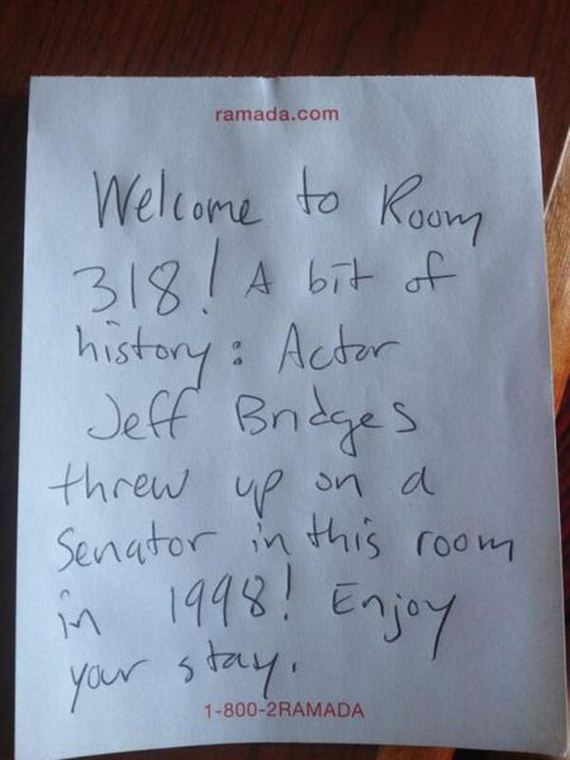 ramada.com
Welcome to Room
318! A bit of
history: Actor
Jeff Bridges
threw up on a
Senator in this room
in 1998! Enjoy
your stay.
1-800-2RAMADA